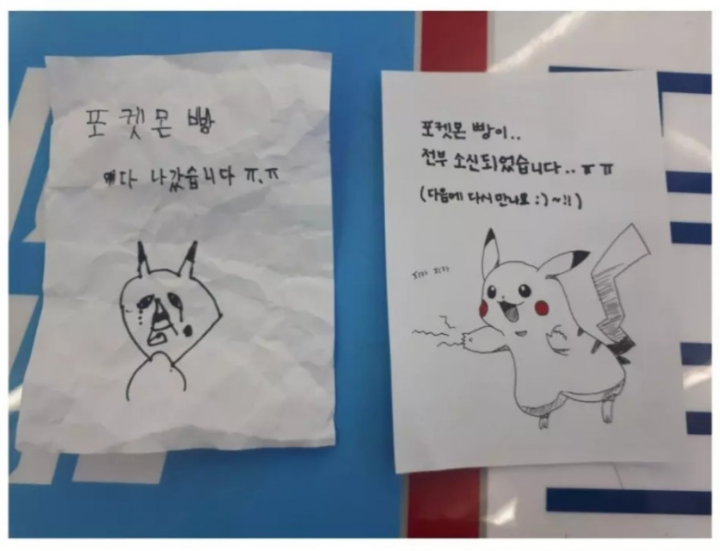 포켓몬 빵
다 나갔습니다 ㅠ.ㅠ
포켓몬 빵이..
전부 소신되었습니다.. ㅠㅠ
(다음에 다시 만나요 :) ~!!)
피카 피카